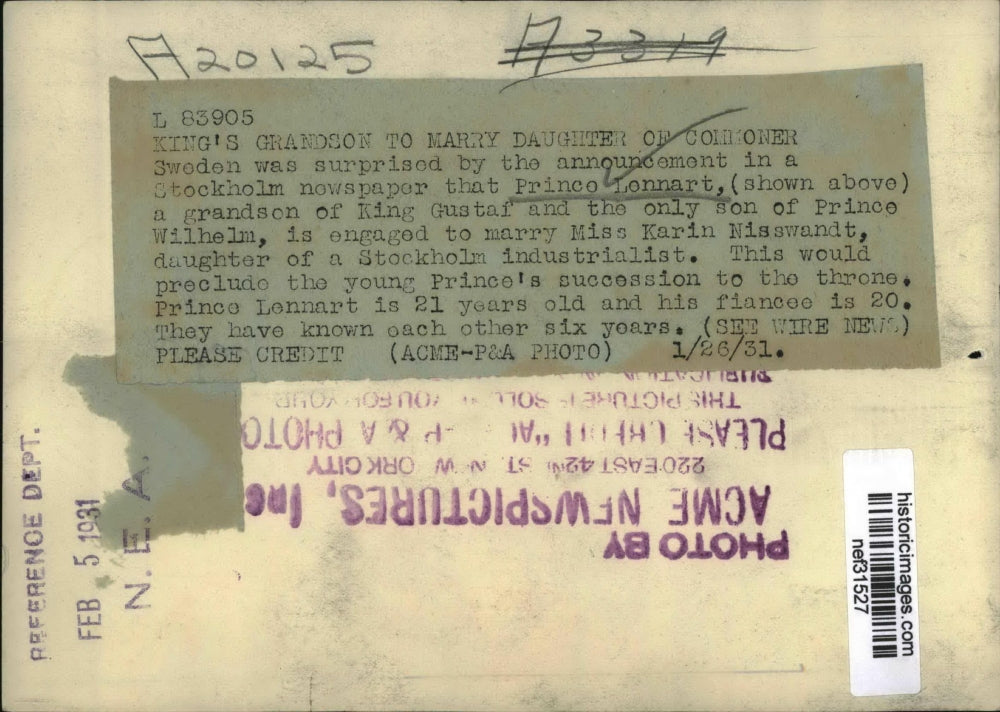 A20125
A3319
L 83905
KING'S GRANDSON TO MARRY DAUGHTER OF COMMONER
Sweden was surprised by the announcement in a
Stockholm newspaper that Prince Lennart, (shown above)
a grandson of King Gustaf and the only son of Prince
Wilhelm, is engaged to marry Miss Karin Nisswandt,
daughter of a Stockholm industrialist. This would
preclude the young Prince's succession to the throne.
Prince Lennart is 21 years old and his fiancee is 20.
They have known each other six years. (SEE WIRE NEWS)
PLEASE CREDIT (ACME-P&A PHOTO) 1/26/31.
PHOTO BY
ACME NEWSPICTURES, Inc
220 EAST 42 ST. YORK CITY
PLEASE CREDIT P & A PHOTO
THIS PICTURE IS FOR YOUR
PUBLICATION
REFERENCE DEPT.
FEB 5 1931
N. E. A.
historicimages.com
nef31527